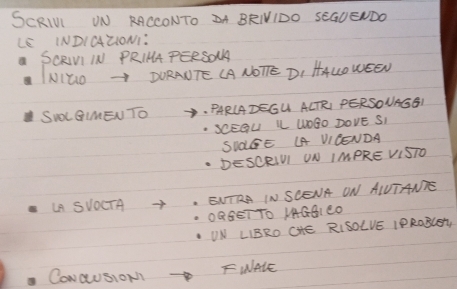 SCRIVI UN RACCONTO DA BRIVIDO SEGUENDO
LE INDICAZIONI:
▪ SCRIVI IN PRIMA PERSONA
▪ INIZIO → DURANTE LA NOTTE DI HALLOWEEN
▪ SVOLGIMENTO → • PARLA DEGLI ALTRI PERSONAGGI
• SCEGLI IL LUOGO DOVE SI
SVOLGE LA VICENDA
• DESCRIVI UN IMPREVISTO
▪ LA SVOLTA → • ENTRA IN SCENA UN AIUTANTE
• OGGETTO MAGGICO
• UN LIBRO CHE RISOLVE I PROBLEM
▪ CONCLUSIONI → FINALE